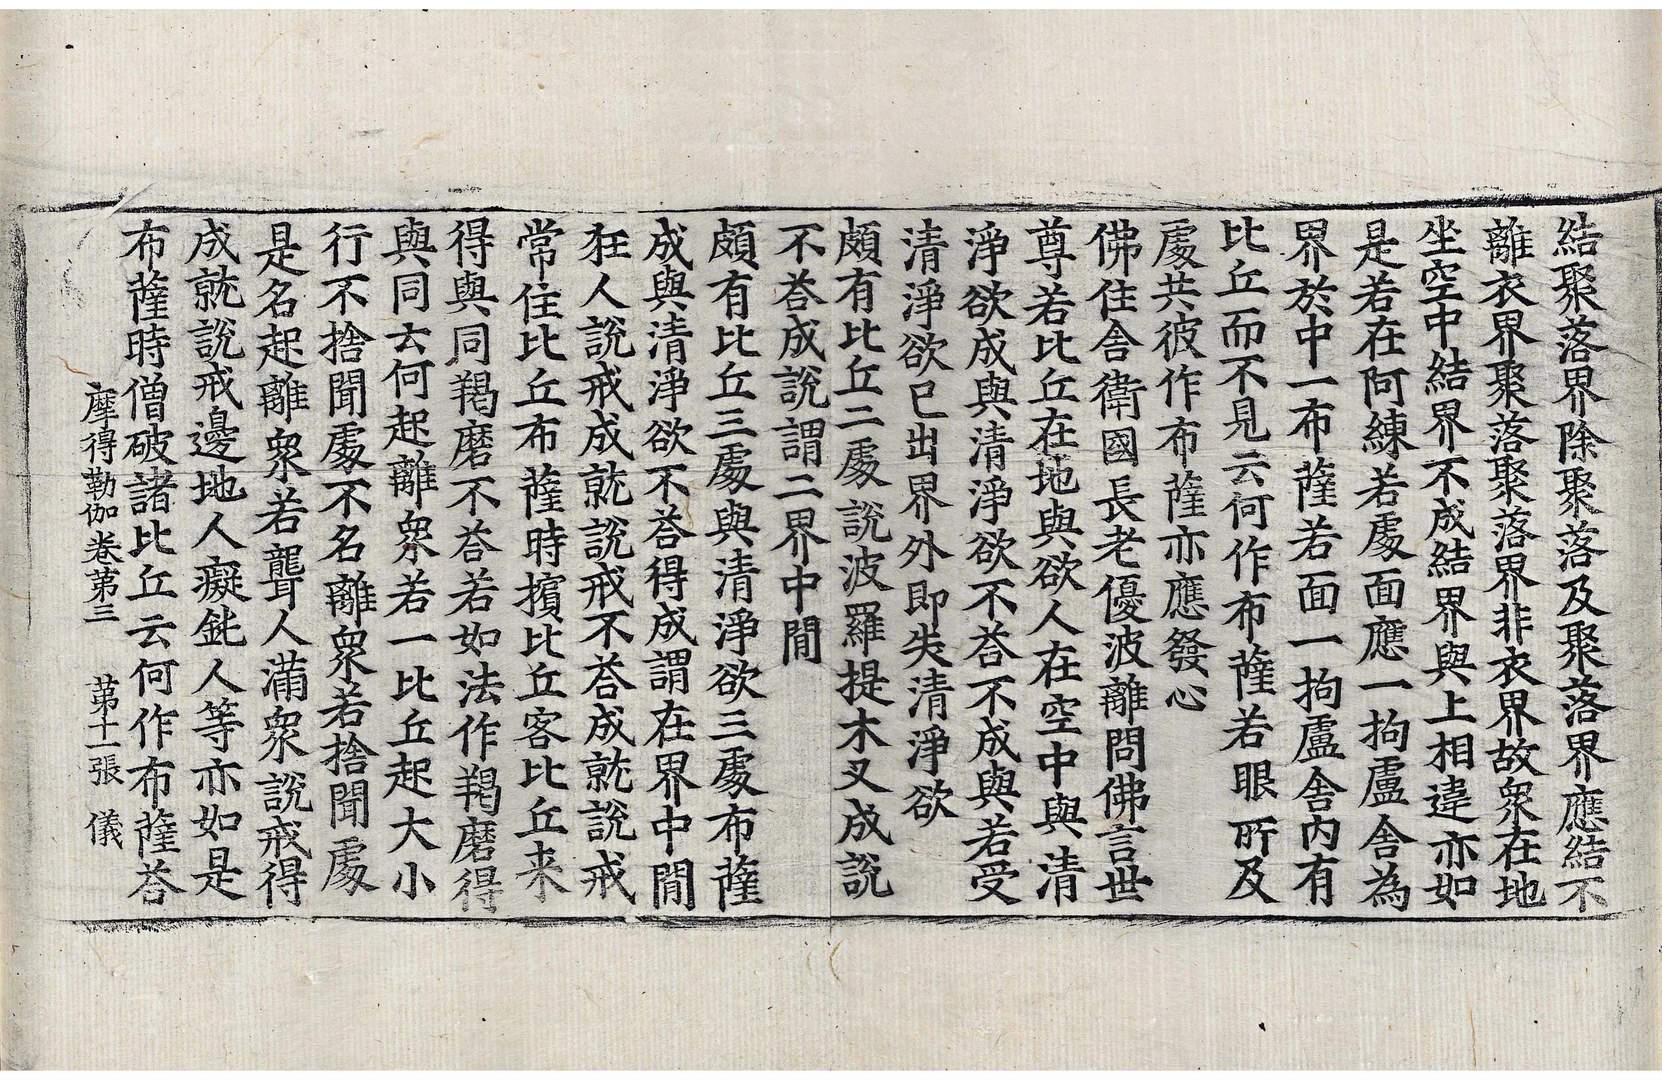 結聚落界除聚落及聚落界應結不
離衣界聚落聚落界非衣界故衆在地
坐空中結界不成結界與上相違亦如
是若在阿練若處面應一拘盧舍為
界於中一布薩若面一拘盧舍內有
比丘而不見云何作布薩若眼所及
處共彼作布薩亦應發心
佛住舍衛國長老優波離問佛言世
尊若比丘在地與欲人在空中與清
淨欲成與清淨欲不荅不成與若受
清淨欲已出界外即失清淨欲
頗有比丘二處說波羅提木叉成說
不荅成說謂二界中間
頗有比丘三處與清淨欲三處布薩
成與清淨欲不荅得成謂在界中間
狂人說戒成就說戒不荅成就說戒
常住比丘布薩時擯比丘客比丘来
得與同羯磨不荅若如法作羯磨得
與同云何起離衆若一比丘起大小
行不捨聞處不名離衆若捨聞處
是名起離衆若聾人滿衆說戒得
成就說戒邊地人癡鈍人等亦如是
布薩時僧破諸比丘云何作布薩荅
摩得勒伽卷第三　第十一張　儀